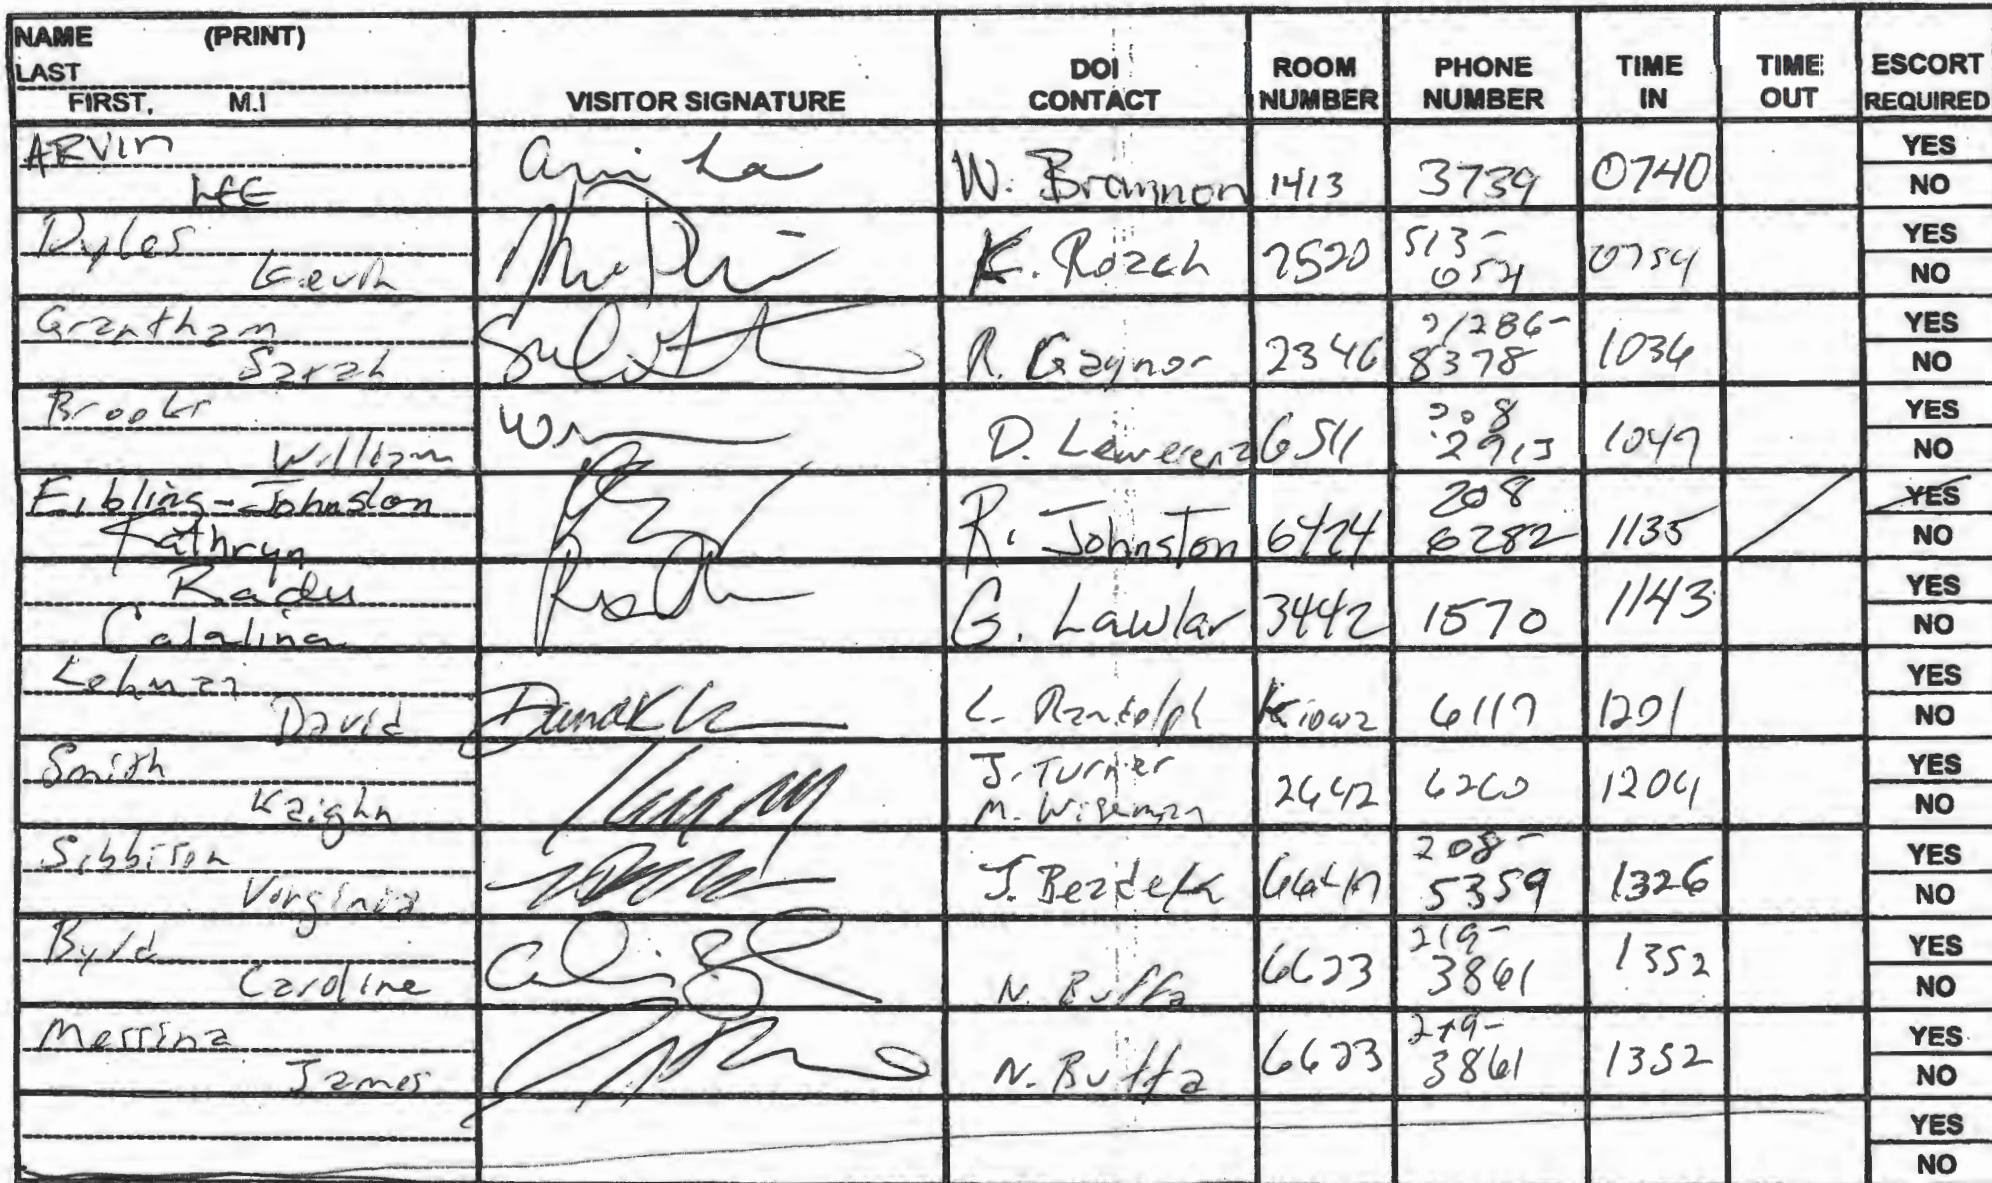 NAME (PRINT)
LAST
FIRST, M.I
VISITOR SIGNATURE
DOI CONTACT
ROOM NUMBER
PHONE NUMBER
TIME IN
TIME OUT
ESCORT REQUIRED
ARVIN
LEE
W. Brannon 1413 3739 0740
YES
NO
Dyles
K. Rozah 7520 513-
0754
YES
NO
Grantham
Sarah
R. Gaynor 2346 8378 1036
YES
NO
Brooks
William
D. Lewerenz 6511 208
1049
YES
NO
Eibling-Johnston
Kathryn
R. Johnston 6424 208
6282 1135
YES
NO
Radu
Catalina
G. Lawlar 3442 1570 1143
YES
NO
Lehman
David
L. Randolph Kiowa 6117 1201
YES
NO
Smith
Kaighn
J. Turner
M. Wiseman
2642 6260 1204
YES
NO
Sibbison
Virginia
J. Bezdek 208-
5359 1326
YES
NO
Byrd
Caroline
N. Buffa 6623 219-
3861 1352
YES
NO
Messina
James
N. Buffa 6623 219-
3861 1352
YES
NO
YES
NO